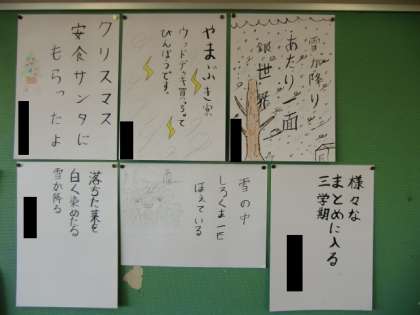 雪が降り
あたり一面
銀世界
やまぶき家
ウッドデッキ買うって
びんぼうです。
クリスマス
安食サンタに
もらったよ
様々な
まとめに入る
三学期
雪の中
しろくま一匹
ばえている
落ちた葉を
白く染めたる
雪が降る